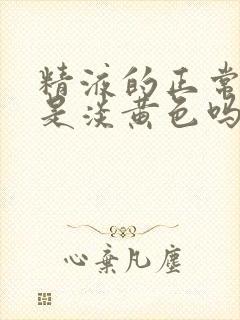 精液的正常
是淡黄色吗
心弃凡尘